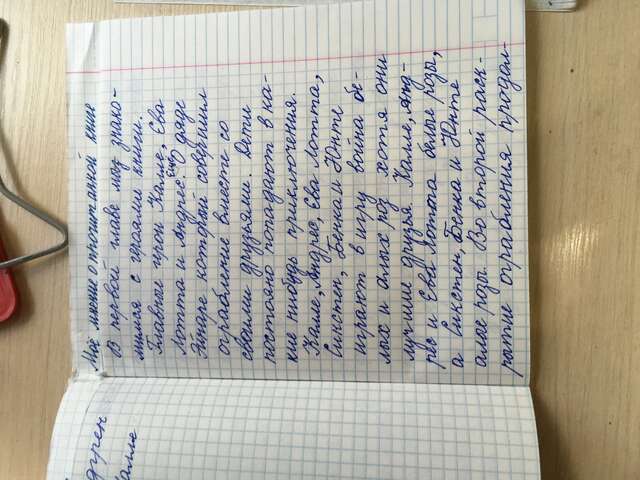 дгрен
алле
Моё мнение о прочитанной книге
В первой главе мыз знако-
мимся с героями книги.
Главные герои Калле, Ева
Лотта и Андрес. Еще О дяде
Эйнаре который совершил
ограбление вместе со
своими друзьями. Дети
постояно попадают в ка-
кие нибудь приключения.
Калле, Андрес, Ева Лотта,
Сикстен, Бенка и Юнте
играют в игру война бе-
лых и алых роз хотя они
лучшие друзья. Калле, Анд-
рес и Ева Лотта белые розы,
а Сикстен, Бенка и Юнте
алые розы. Во второй раск-
рытие ограбления продол-